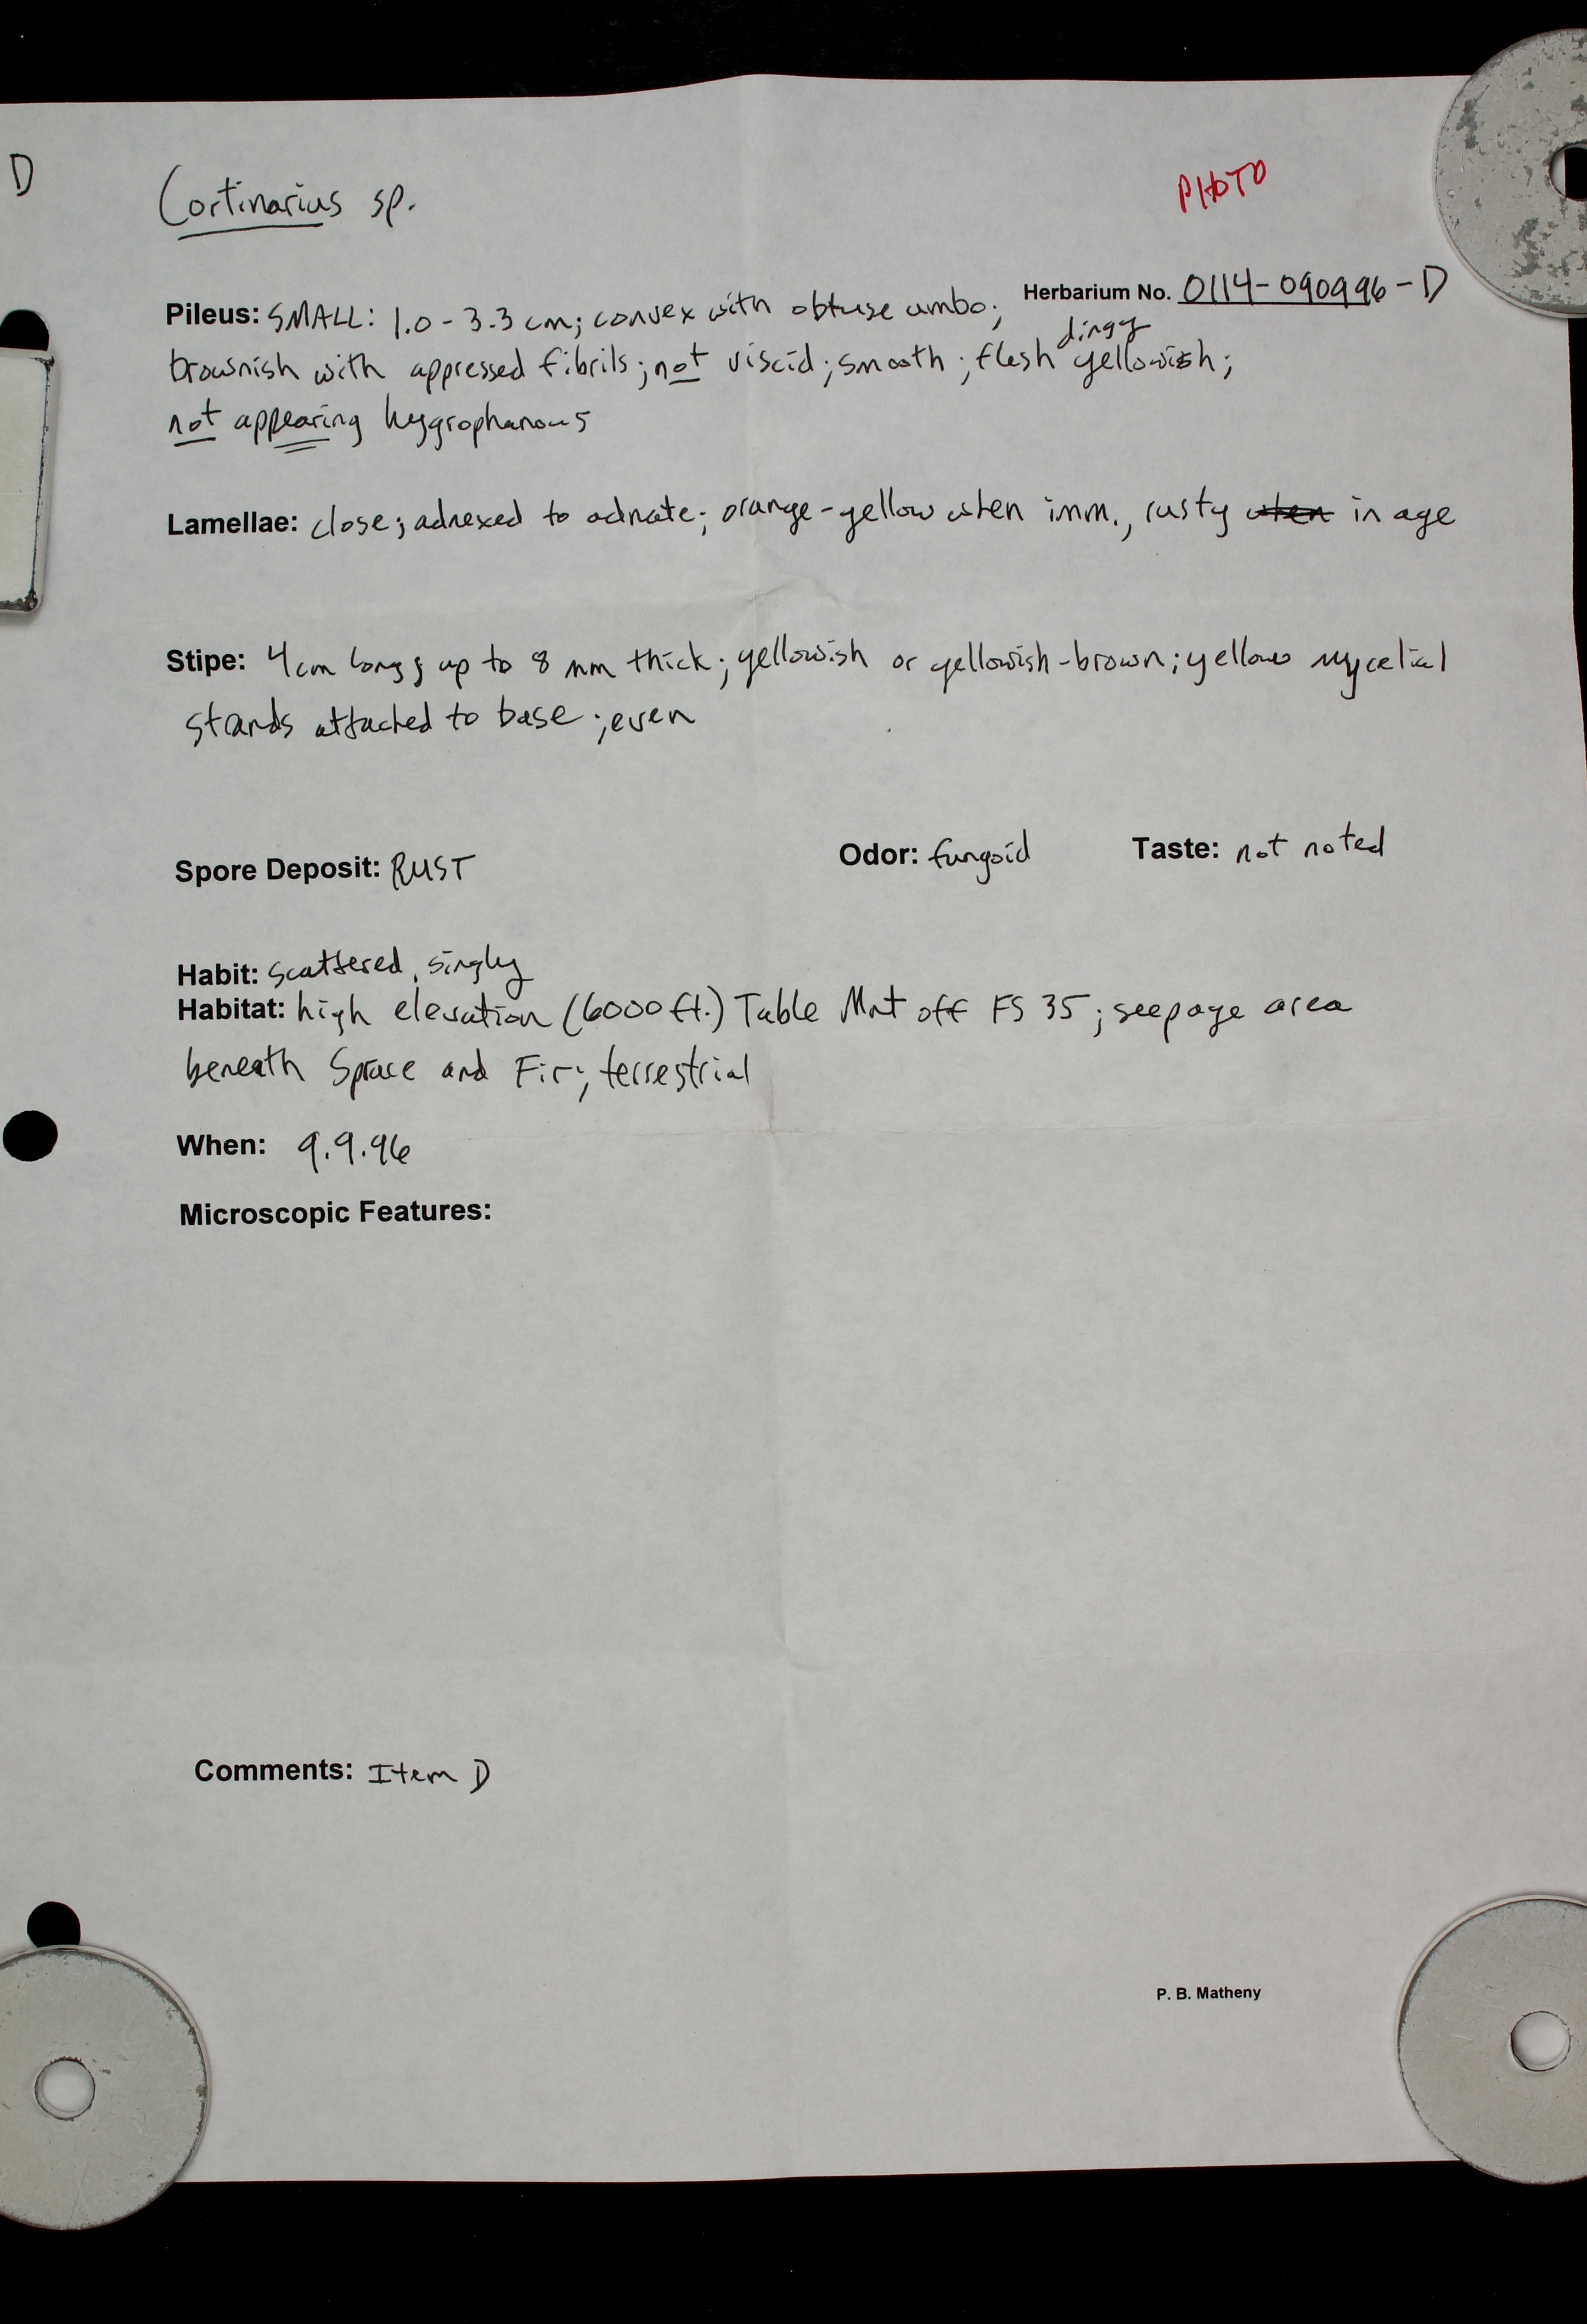 D
Cortinarius sp.
PHOTO
Herbarium No. 0114-090996-D
Pileus: SMALL: 1.0-3.3 cm; convex with obtuse umbo;
dingy
brownish with appressed fibrils; not viscid; smooth; flesh yellowish;
not appearing hygrophanous
Lamellae: close; adnexed to adnate; orange-yellow when imm., rusty when in age
Stipe: 4cm long; up to 8 mm thick; yellowish or yellowish-brown; yellow mycelial
stands attached to base; even
Spore Deposit: RUST
Odor: fungoid
Taste: not noted
Habit: scattered, singly
Habitat: high elevation (6000 ft.) Table Mnt off FS 35; seepage area
beneath Spruce and Fir; terrestrial
When: 9.9.96
Microscopic Features:
Comments: Item D
P. B. Matheny